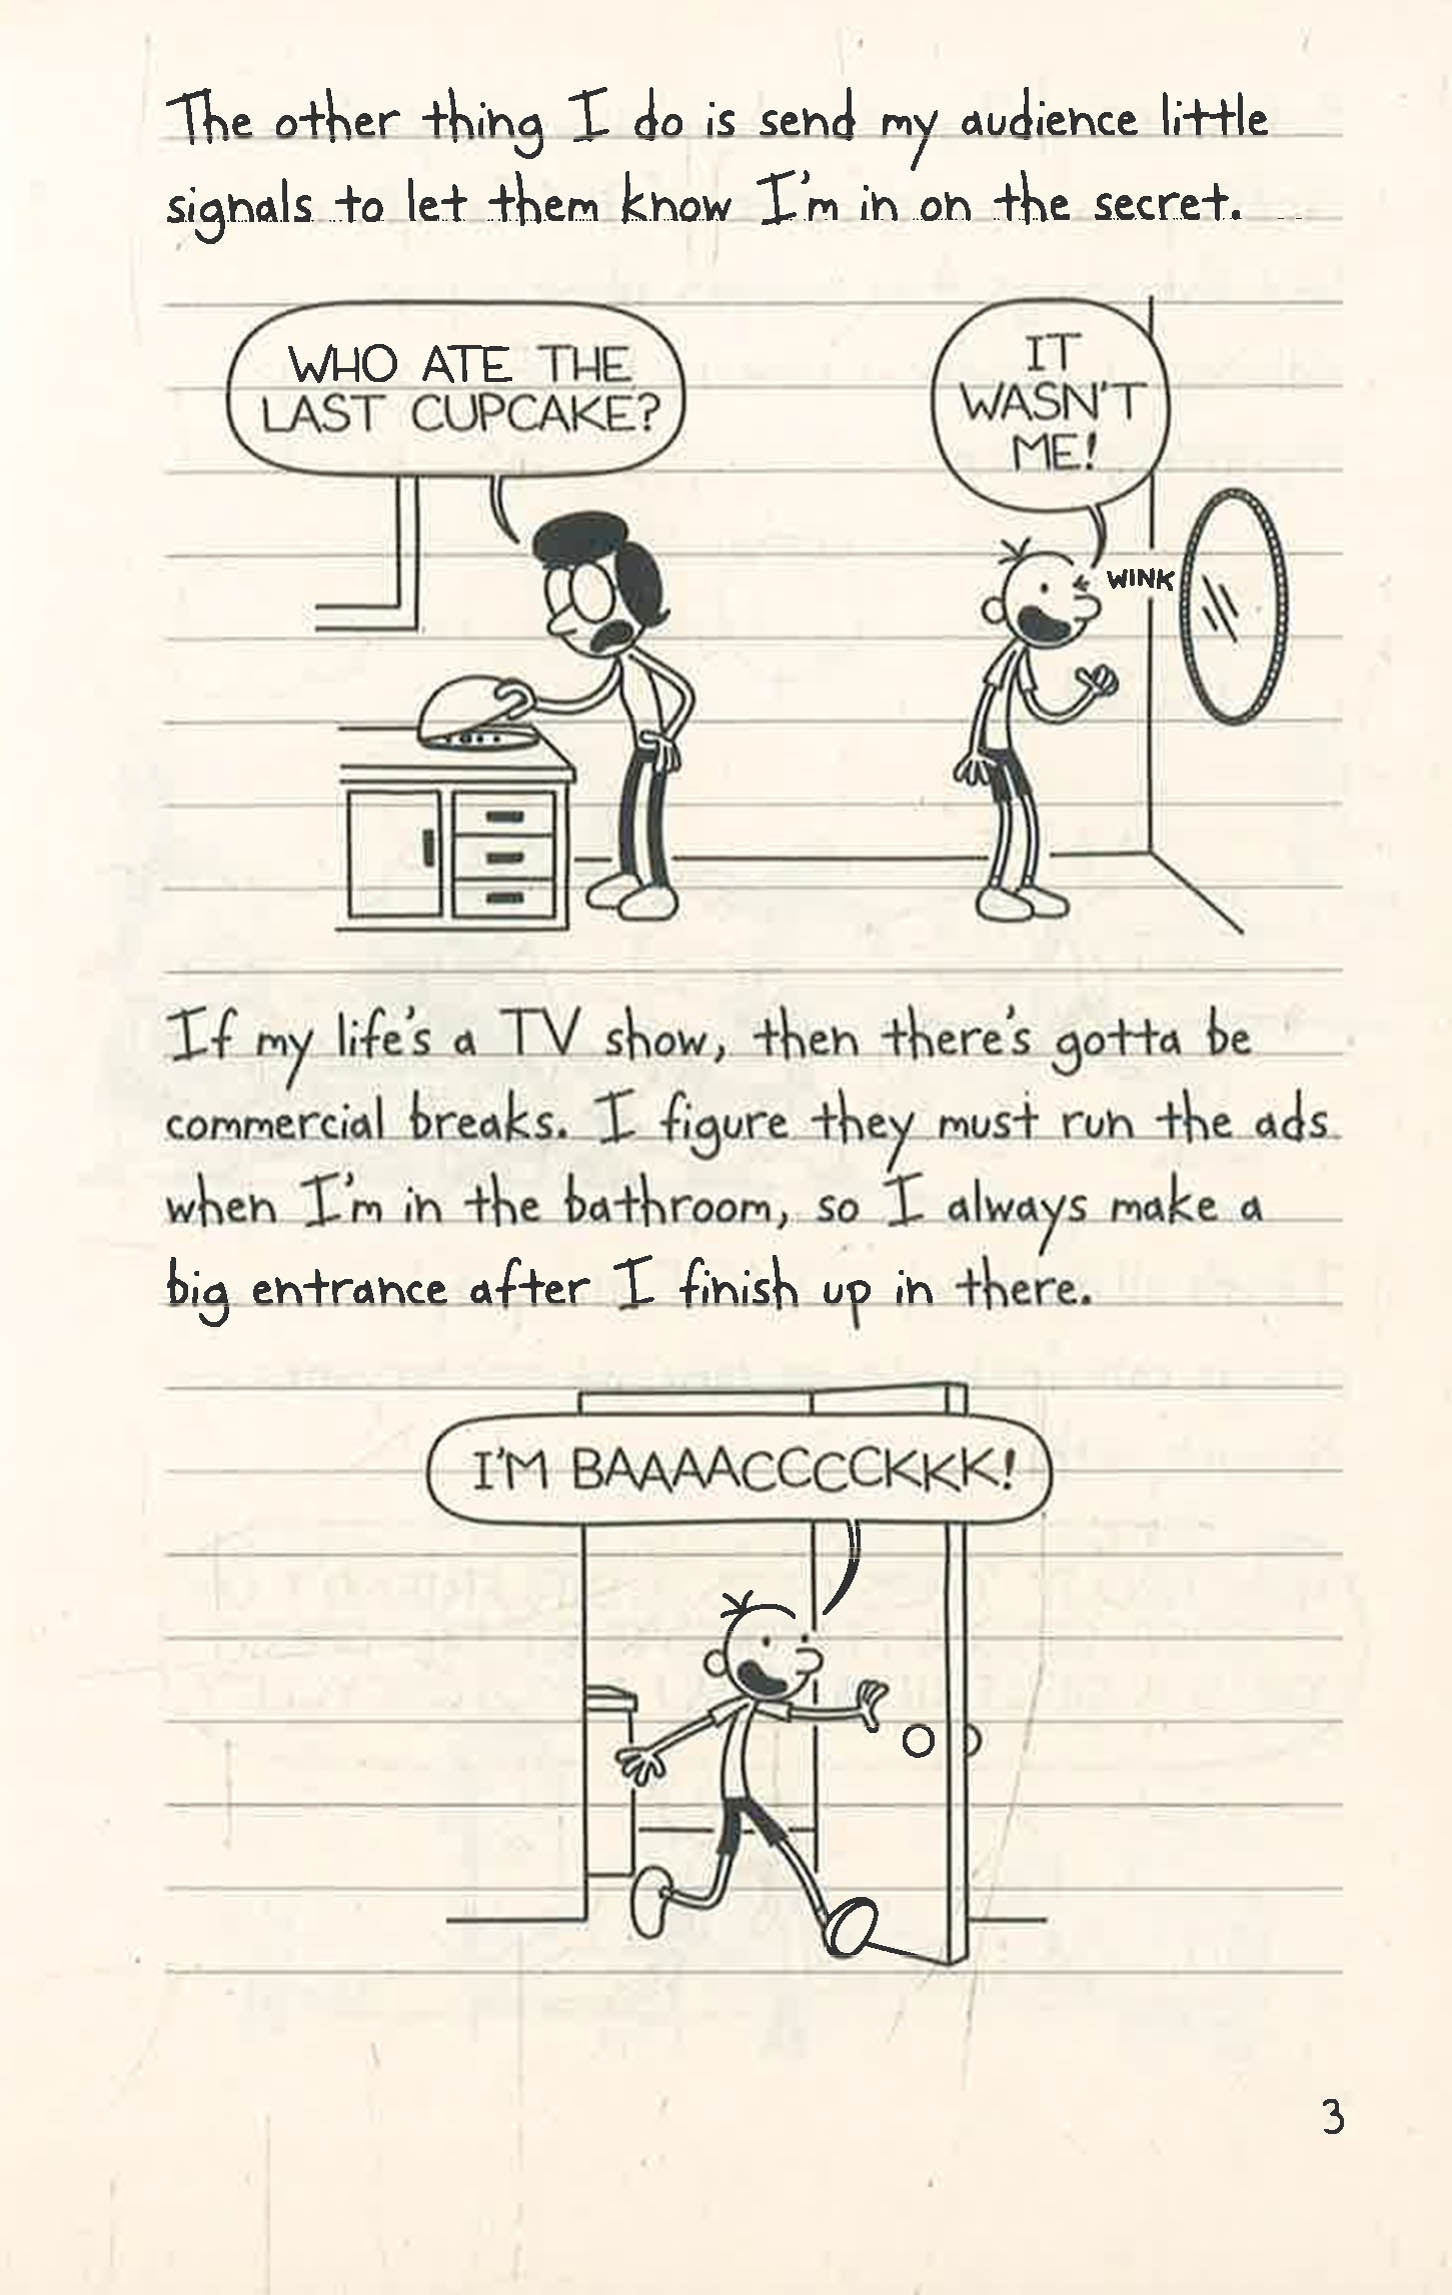 The other thing I do is send my audience little
signals to let them know I'm in on the secret.
WHO ATE THE
LAST CUPCAKE?
IT
WASN'T
ME!
WINK
If my life's a TV show, then there's gotta be
commercial breaks. I figure they must run the ads
when I'm in the bathroom, so I always make a
big entrance after I finish up in there.
I'M BAAAACCCCKKK!
3